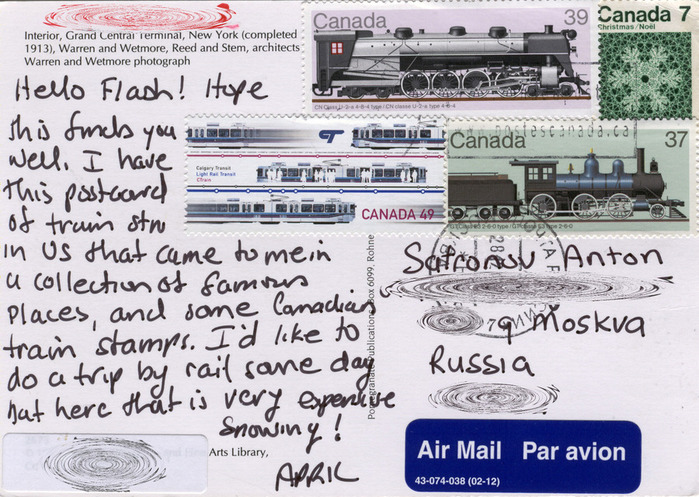 Interior, Grand Central Terminal, New York (completed
1913), Warren and Wetmore, Reed and Stem, architects
Warren and Wetmore photograph
Hello Flash! Hope
this finds you
well. I have
this postcard
of train stn
in US that came to me in
a collection of famous
places, and some Canadian
train stamps. I'd like to
do a trip by rail some day
but here that is very expensive
Snowing!
APRIL
Arts Library,
Canada 39
CN Class U-2-a 4-8-4 type / CN classe U-2-a type 4-8-4
Canada 7
Christmas/Noël
Calgary Transit
Light Rail Transit
CTrain
CANADA 49
Canada 37
postescanada.ca
Safronov Anton
g Moskva
Russia
Box 6099, Rohne
Air Mail Par avion
43-074-038 (02-12)